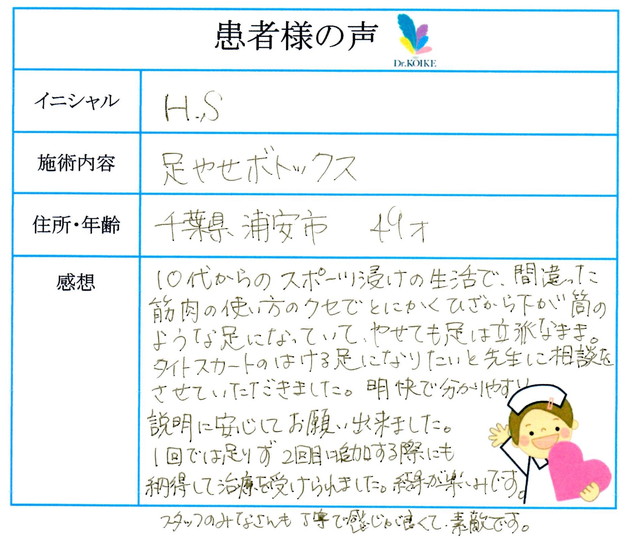 患者様の声
Dr.KOIKE
イニシャル
H.S
施術内容
足やせボトックス
住所・年齢
千葉県 浦安市 49才
感想
10代からのスポーツ浸けの生活で、間違った
筋肉の使い方のクセでとにかくひざから下が筒の
ような足になっていて、やせても足は立派なまま。
タイトスカートのはける足になりたいと先生に相談を
させていただきました。明快で分かりやすい
説明に安心してお願い出来ました。
1回では足りず2回目追加する際にも
納得して治療を受けられました。結果が楽しみです。
スタッフのみなさんも丁寧で感じが良くて、素敵です。